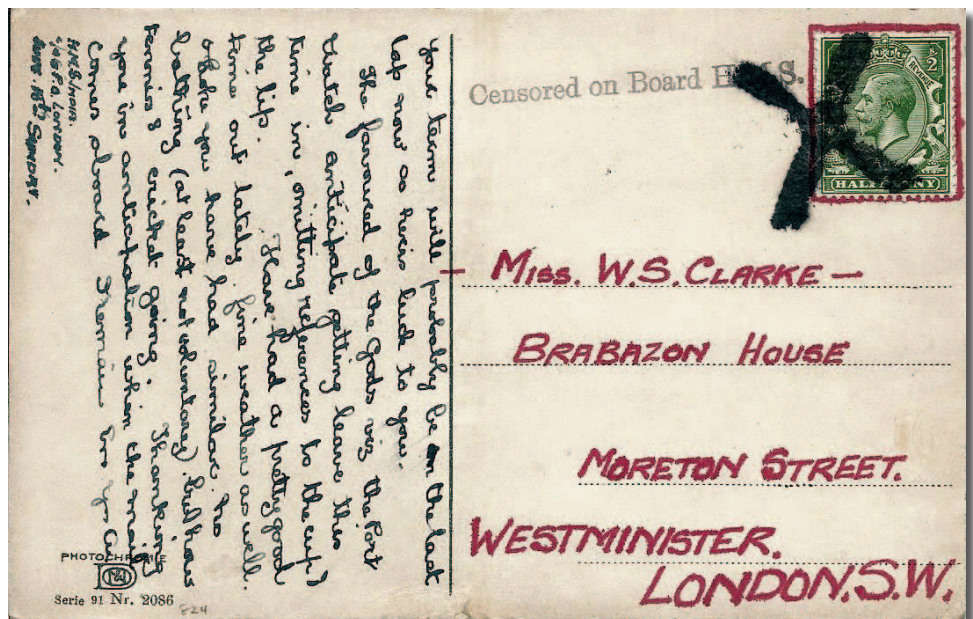 Censored on Board H.M.S.
REVENUE
1/2
HALFPENNY
Miss. W.S. CLARKE —
BRABAZON HOUSE
MORETON STREET.
WESTMINISTER.
LONDON.S.W.
H.M.S. INDIA.
c/o G.P.O. LONDON.
AUG. 15th SUNDAY.
your team will probably be on the last
lap now so heres luck to you.
The favoured of the Gods viz the Port
Watch anticipate getting leave this
time in, (omitting references to the cup)
the lip. Have had a pretty good
time out lately fine weather as well
hope you have had similar. No
bathing (at least not voluntary) but have
tennis & cricket going. Thanking
you in anticipation when the mail
comes aboard I remain
PHOTOCHROMIE
Serie 91 Nr. 2086
824